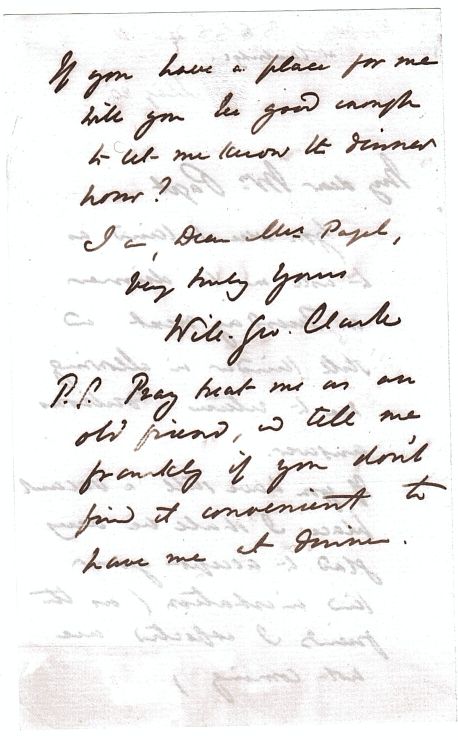 If you have a place for me
will you be good enough
to let me know the dinner
hour?
I am, Dear Mrs. Paget,
Very truly yours
Will. Geo. Clark
P.S. Pray treat me as an
old friend, & tell me
frankly if you don't
find it convenient to
have me at dinner.